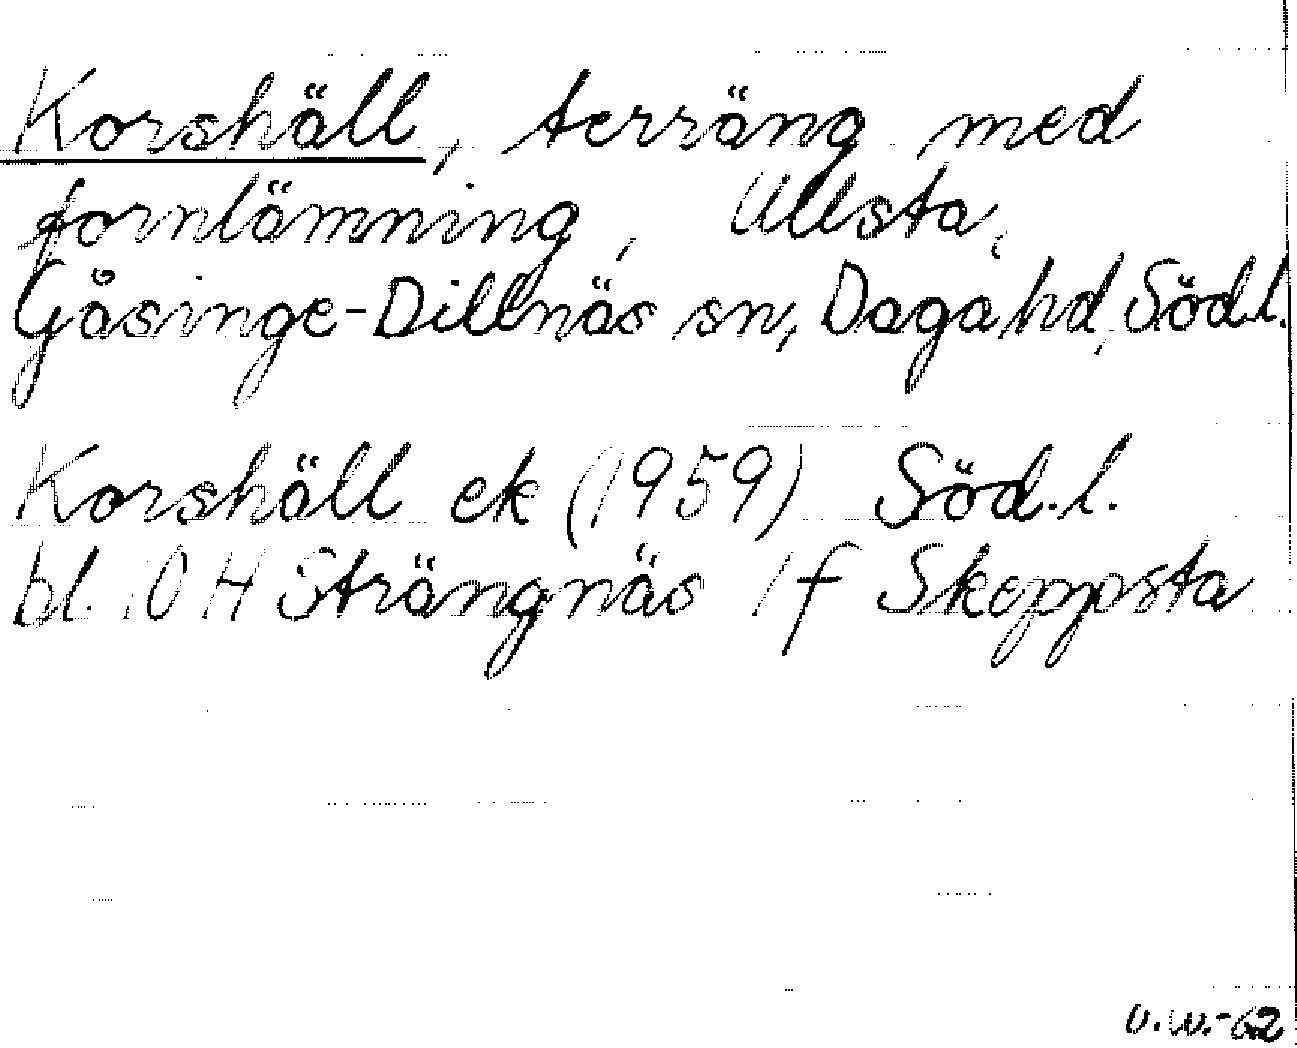 Korshäll, terräng med
fornlämning, Ullsta,
Gåsinge-Dillnäs sn, Daga hd, Söd.l.
Korshäll ek (1959) Söd.l.
bl. 10 H Strängnäs 1 f Skeppsta
U.W.-62